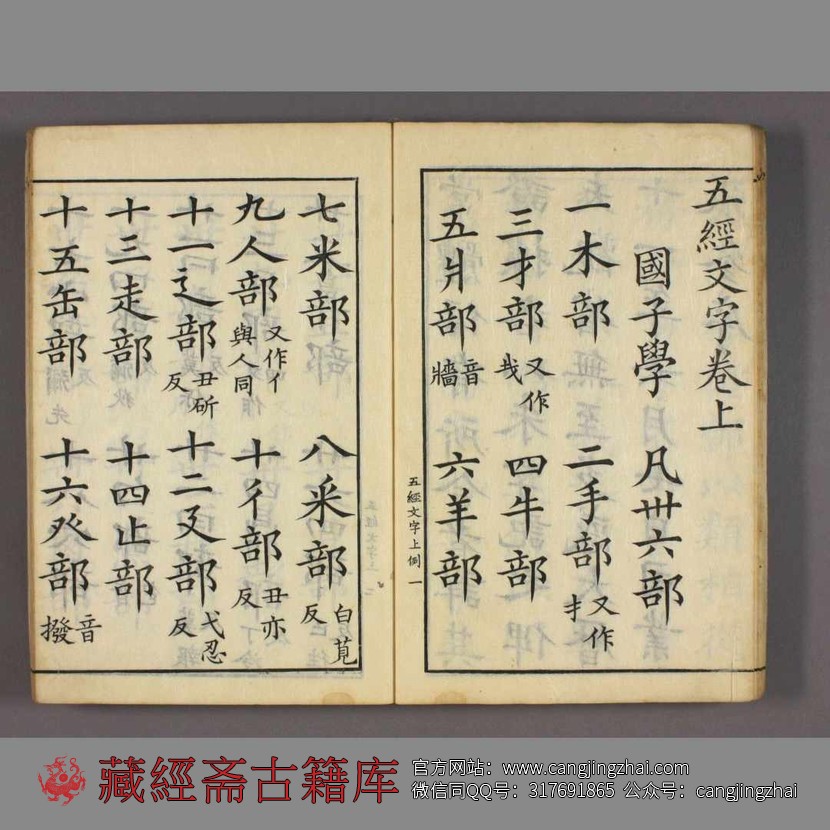 五經文字卷上
國子學 凡卅六部
一木部 二手部 又作扌
三才部 又作𢦏 四牛部
五爿部 音牆 六羊部
五經文字上側一
七米部 八釆部 白莧反
九人部 又作亻與人同 十彳部 丑亦反
十一辵部 丑斫反 十二廴部 弋忍反
十三走部 十四止部
十五缶部 十六癶部 音撥
藏經斋古籍库
官方网站：www.cangjingzhai.com
微信同QQ号：317691865 公众号：cangjingzhai